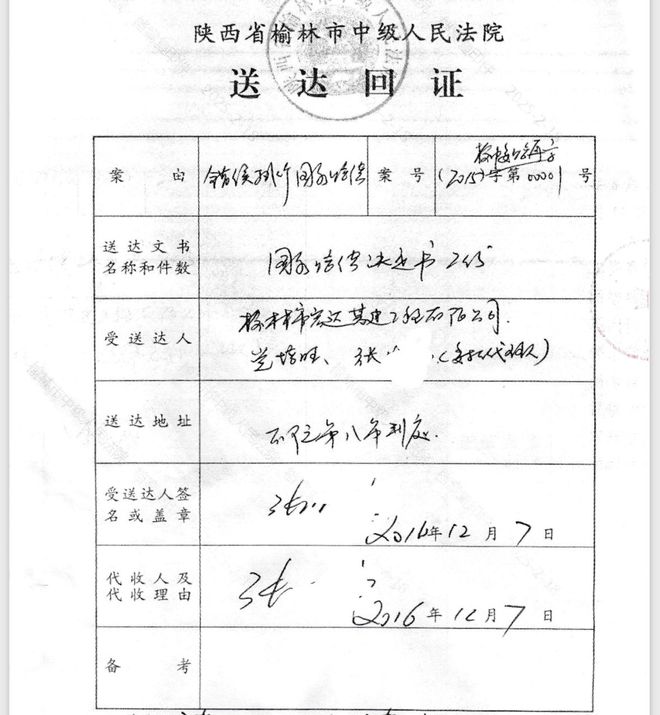 陕西省榆林市中级人民法院
送达回证
案由 错误执行国家赔偿 案号 (2015)字第00001号
送达文书名称和件数 国家赔偿决定书二份
受送达人 榆林市宏达基建工程有限公司.
张 (委托代理人)
送达地址
受送达人签名或盖章 张
2016年12月7日
代收人及代收理由 张
2016年12月7日
备考